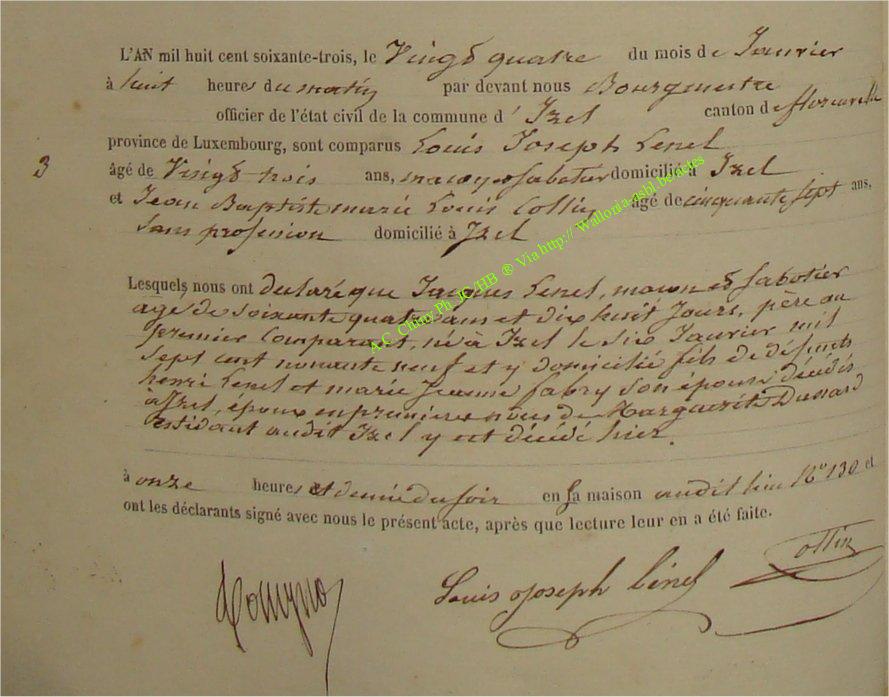 L'AN mil huit cent soixante-trois, le Vingt quatre du mois de Janvier
à huit heures du matin par devant nous Bourgmestre
officier de l'état civil de la commune d' Izel canton de florenville
province de Luxembourg, sont comparus Louis Joseph Lenel
3 âgé de Vingt trois ans, maçon et sabotier domicilié à Izel
et Jean Baptiste marie Louis Collin âgé de cinquante sept ans,
Sans profession domicilié à Izel
Lesquels nous ont declaré que Jacques Lenel, macon et sabotier
agé de soixante quatre ans et dix huit Jours, père au
premier comparant, né à Izel le six Janvier mil
sept cent nonante neuf et y domicilié fils de défunts
henri Lenel et marie Jeanne fabry son épouse décédés
à Izel, époux en premières noces de Marguerite Dussard
résidant audit Izel y est décédé hier.
à onze heures et demie du soir en sa maison audit lieu No 130 et
ont les déclarants signé avec nous le présent acte, après que lecture leur en a été faite.
Louis Joseph Lénel Collin
A.C. Chiny Ph. JC/HB ® Via http:// Wallonia-asbl.be/etes